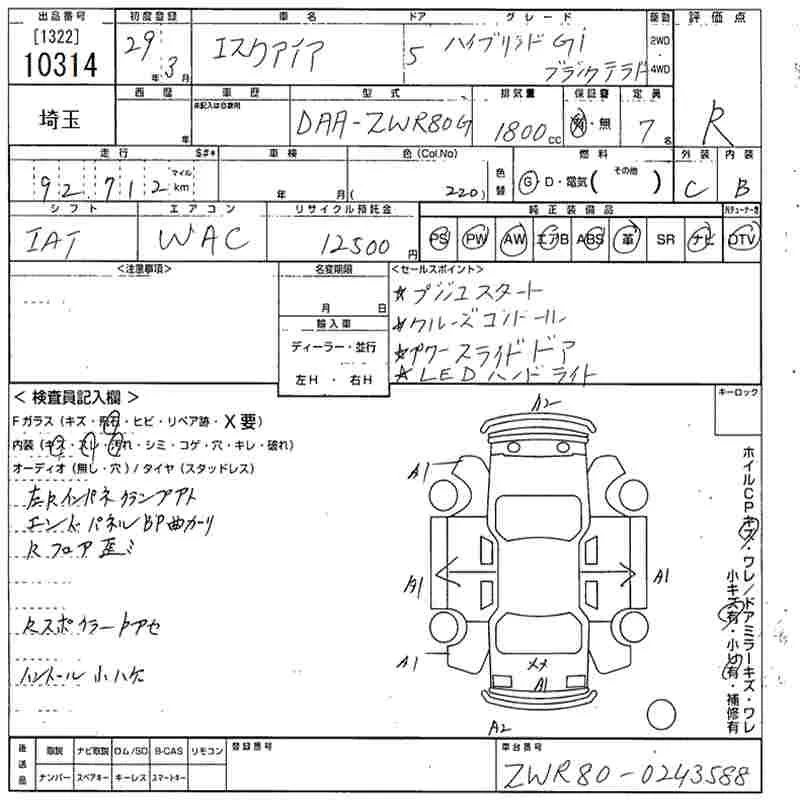 出品番号 初度登録 車名 ドア グレード 駆動 評価点
[1322]
10314
29年 3月 エスクァイア 5 ハイブリッド Gi
ブラックテーラード
2WD・4WD
R
埼玉
西暦 車歴 型式 排気量 保証書 定員
年 ※記入は自家用 DAA-ZWR80G 1800cc 有・無 7名
走行 S#* 車検 色(Col.No) 燃料 外装 内装
92712 マイル km 年 月( 220) 色替 G・D・電気( その他 ) C B
シフト エアコン リサイクル預託金 純正装備品
IAT WAC 12500円 PS PW AW エアB ABS 革 SR ナビ DTV
<注意事項> 名変期限 <セールスポイント>
月 日
☆プッシュスタート
☆クルーズコントロール
☆パワースライドドア
☆LEDヘッドライト
輸入車
ディーラー・並行
左H・右H
キーロック
<検査員記入欄>
Fガラス(キズ・飛石・ヒビ・リペア跡・X要)
内装(キズ・スレ・汚れ・シミ・コゲ・穴・キレ・破れ)
オーディオ(無し・穴)/タイヤ(スタッドレス)
左Rインパネクランプアト
エンドパネルBP曲がり
Rフロア歪ミ
Rスポイラー色アセ
ハンドル小ハゲ
A2
A1
A1
A1
A1
A1
××
A1
A2
ホイルCPキズ・ワレ/ドアミラーキズ・ワレ
小キズ有・小凹有・補修有
後送品 取説 ナビ取説 ロム/SD B-CAS リモコン 登録番号 車台番号
ナンバー スペアキー キーレス スマートキー ZWR80-0243588